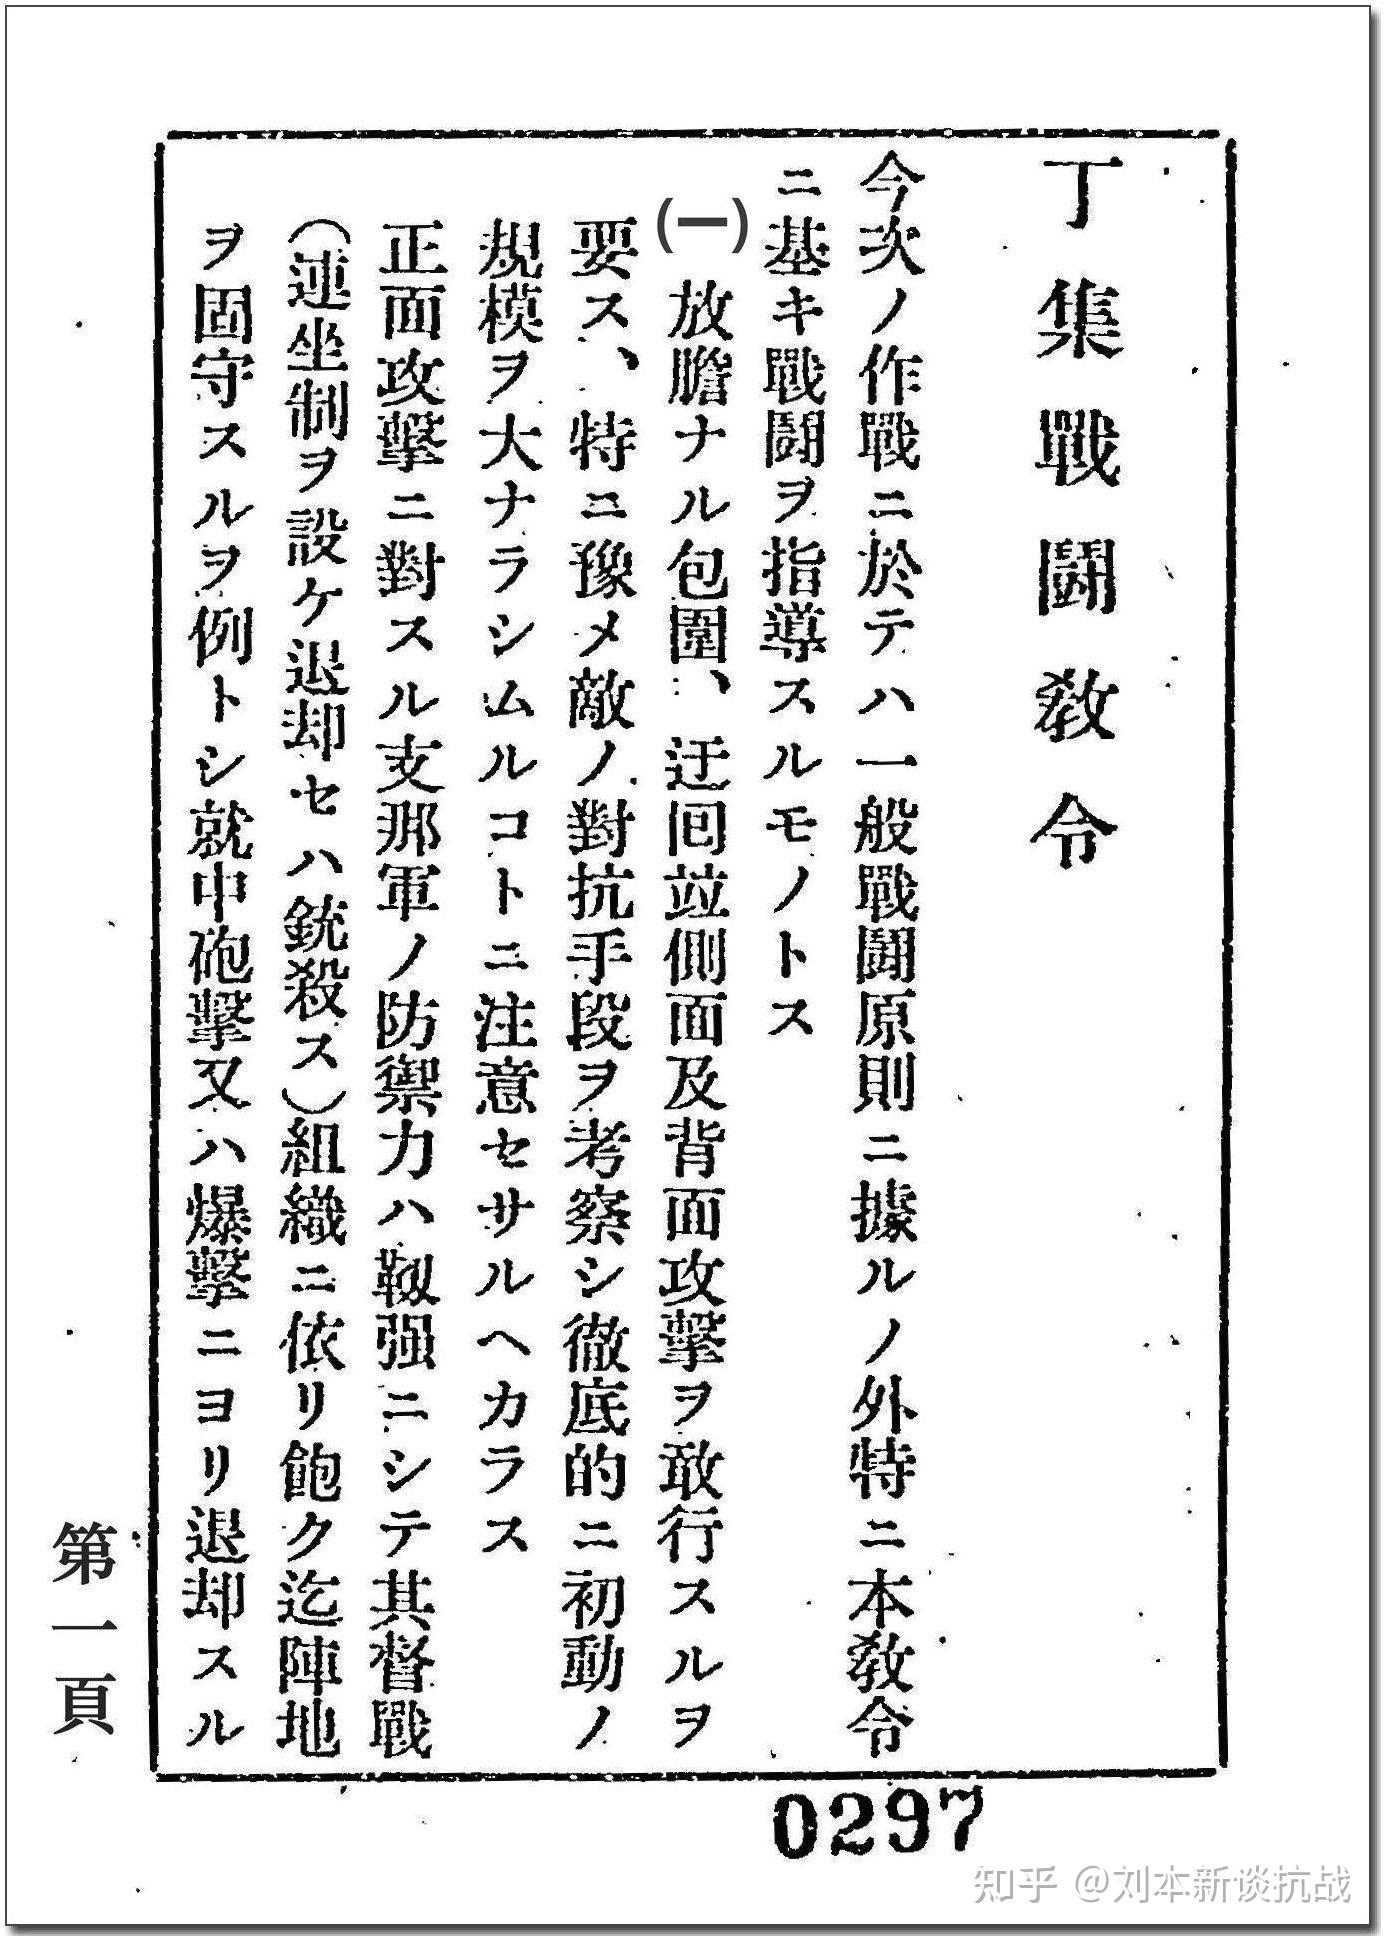 丁集戰鬪敎令
今次ノ作戰ニ於テハ一般戰鬪原則ニ據ルノ外特ニ本敎令
ニ基キ戰鬪ヲ指導スルモノトス
(一) 放膽ナル包圍、迂回竝側面及背面攻擊ヲ敢行スルヲ
要ス、特ニ豫メ敵ノ對抗手段ヲ考察シ徹底的ニ初動ノ
規模ヲ大ナラシムルコトニ注意セサルヘカラス
正面攻擊ニ對スル支那軍ノ防禦力ハ靱强ニシテ其督戰
(連坐制ヲ設ケ退却セハ銃殺ス)組織ニ依リ飽ク迄陣地
ヲ固守スルヲ例トシ就中砲擊又ハ爆擊ニヨリ退却スル
第一頁
0297
知乎 @刘本新谈抗战